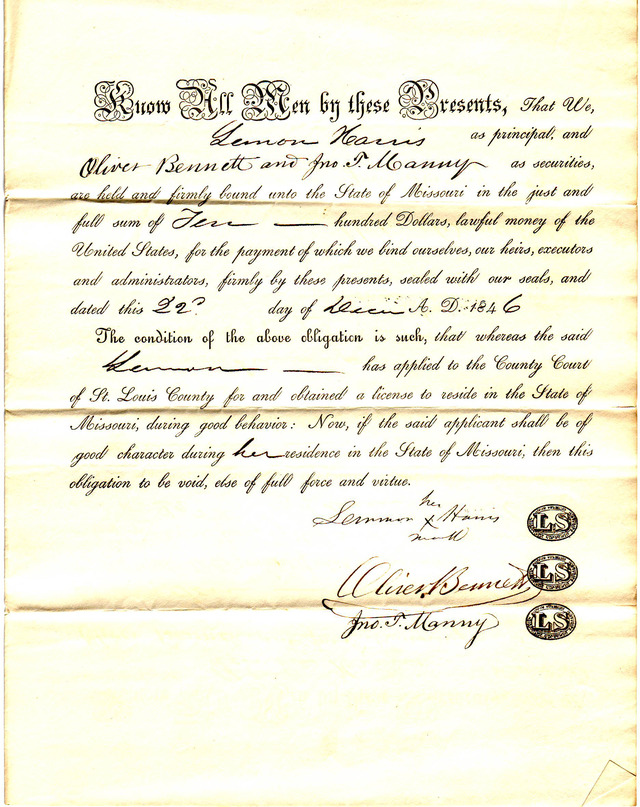 Know All Men by these Presents, That We,
Lemon Harris as principal, and
Oliver Bennett and Jno. T. Manny as securities,
are held and firmly bound unto the State of Missouri in the just and
full sum of Ten — hundred Dollars, lawful money of the
United States, for the payment of which we bind ourselves, our heirs, executors
and administrators, firmly by these presents, sealed with our seals, and
dated this 22 day of A. D. 1846
The condition of the above obligation is such, that whereas the said
Lemon — has applied to the County Court
of St. Louis County for and obtained a license to reside in the State of
Missouri, during good behavior: Now, if the said applicant shall be of
good character during her residence in the State of Missouri, then this
obligation to be void, else of full force and virtue.
her
Lemmon x Harris LS
mark
Oliver Bennett LS
Jno. T. Manny LS